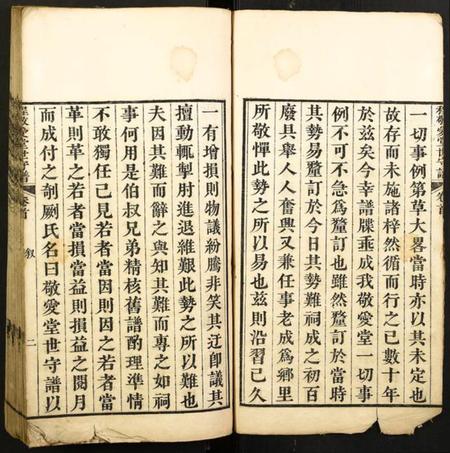 程敬愛堂世守譜
卷首
一切事例第草大畧當時亦以其未定也
故存而未施諸梓然循而行之已數十年
於茲矣今幸譜牒垂成我敬愛堂一切事
例不可不急爲釐訂也雖然釐訂於當時
其勢易釐訂於今日其勢難祠成之初百
廢具舉人人奮興又兼任事老成爲鄉里
所敬憚此勢之所以易也茲則沿習已久
一有增損則物議紛騰非笑其迂卽議其
擅動輒掣肘進退維艱此勢之所以難也
夫因其難而辭之與知其難而專之如祠
事何用是偕叔兄弟精核舊譜酌理準情
不敢獨任己見若者當因則因之若者當
革則革之若者當損當益則損益之閱月
而成付之剞劂氏名曰敬愛堂世守譜以
程敬愛堂世守譜
卷首
叙
二